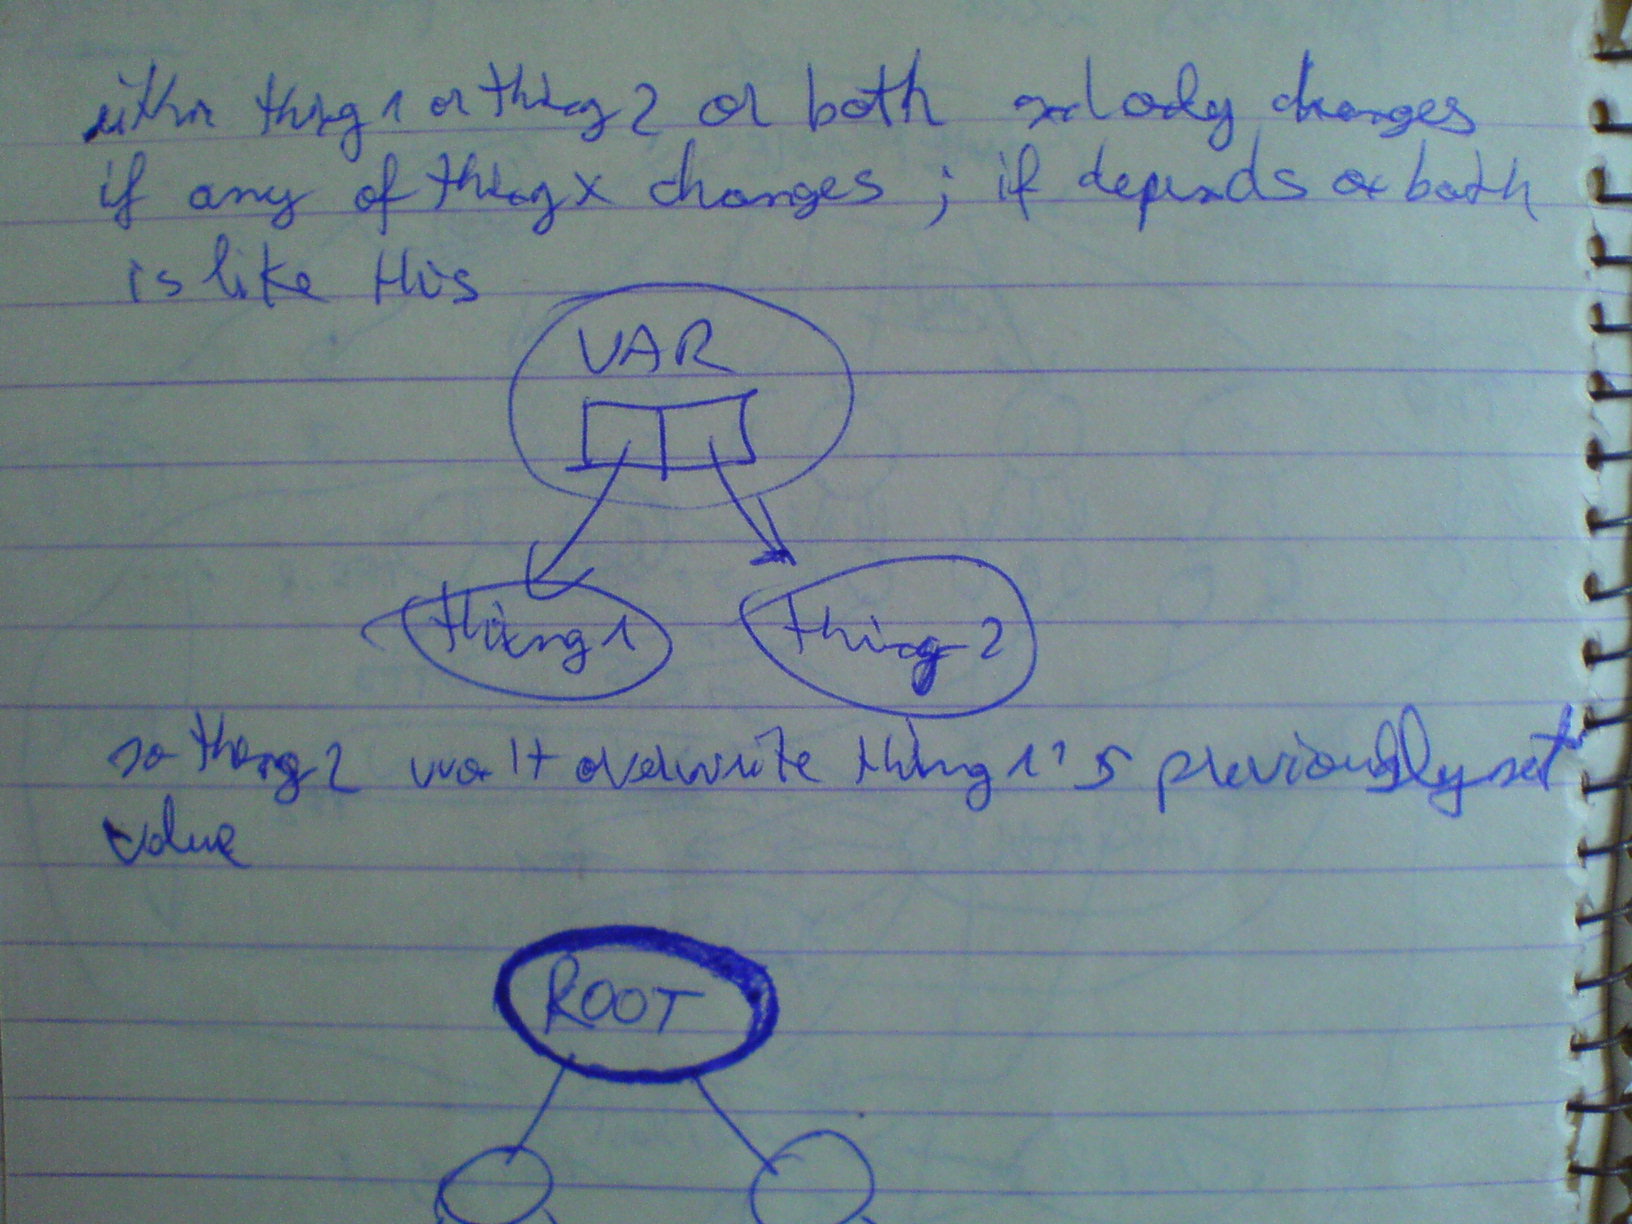 either thing 1 or thing 2 or both and only changes
if any of thing x changes ; if depends on both
is like this
VAR
thing 1
thing 2
so thing 2 won't overwrite thing 1's previously set
value
ROOT